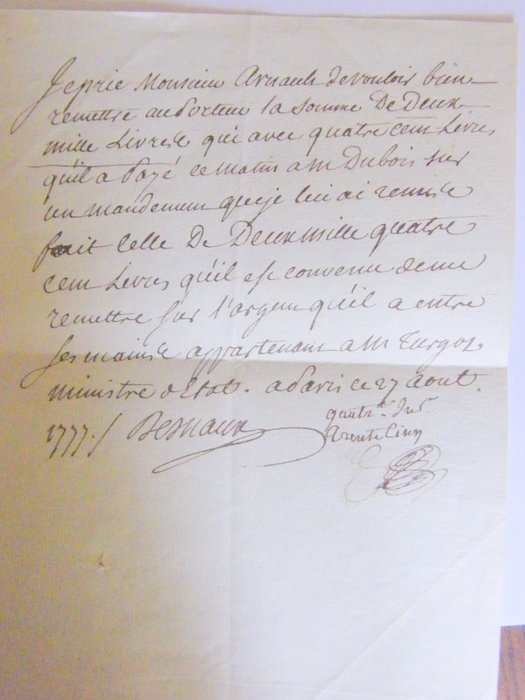 Je prie Monsieur Arnault de vouloir bien
remettre au Porteur la somme De Deux
mille Livres qui avec quatre cent Livres
qu'il a Payé ce matin a M Dubois sur
un mandement que je lui ai remis
fait Celle De Deux mille quatre
cent Livres qu'il est convenu de me
remettre sur l'argent qu'il a entre
ses mains appartenant a M Turgot
ministre d'Etat. a Paris ce 27 aout.
1777./